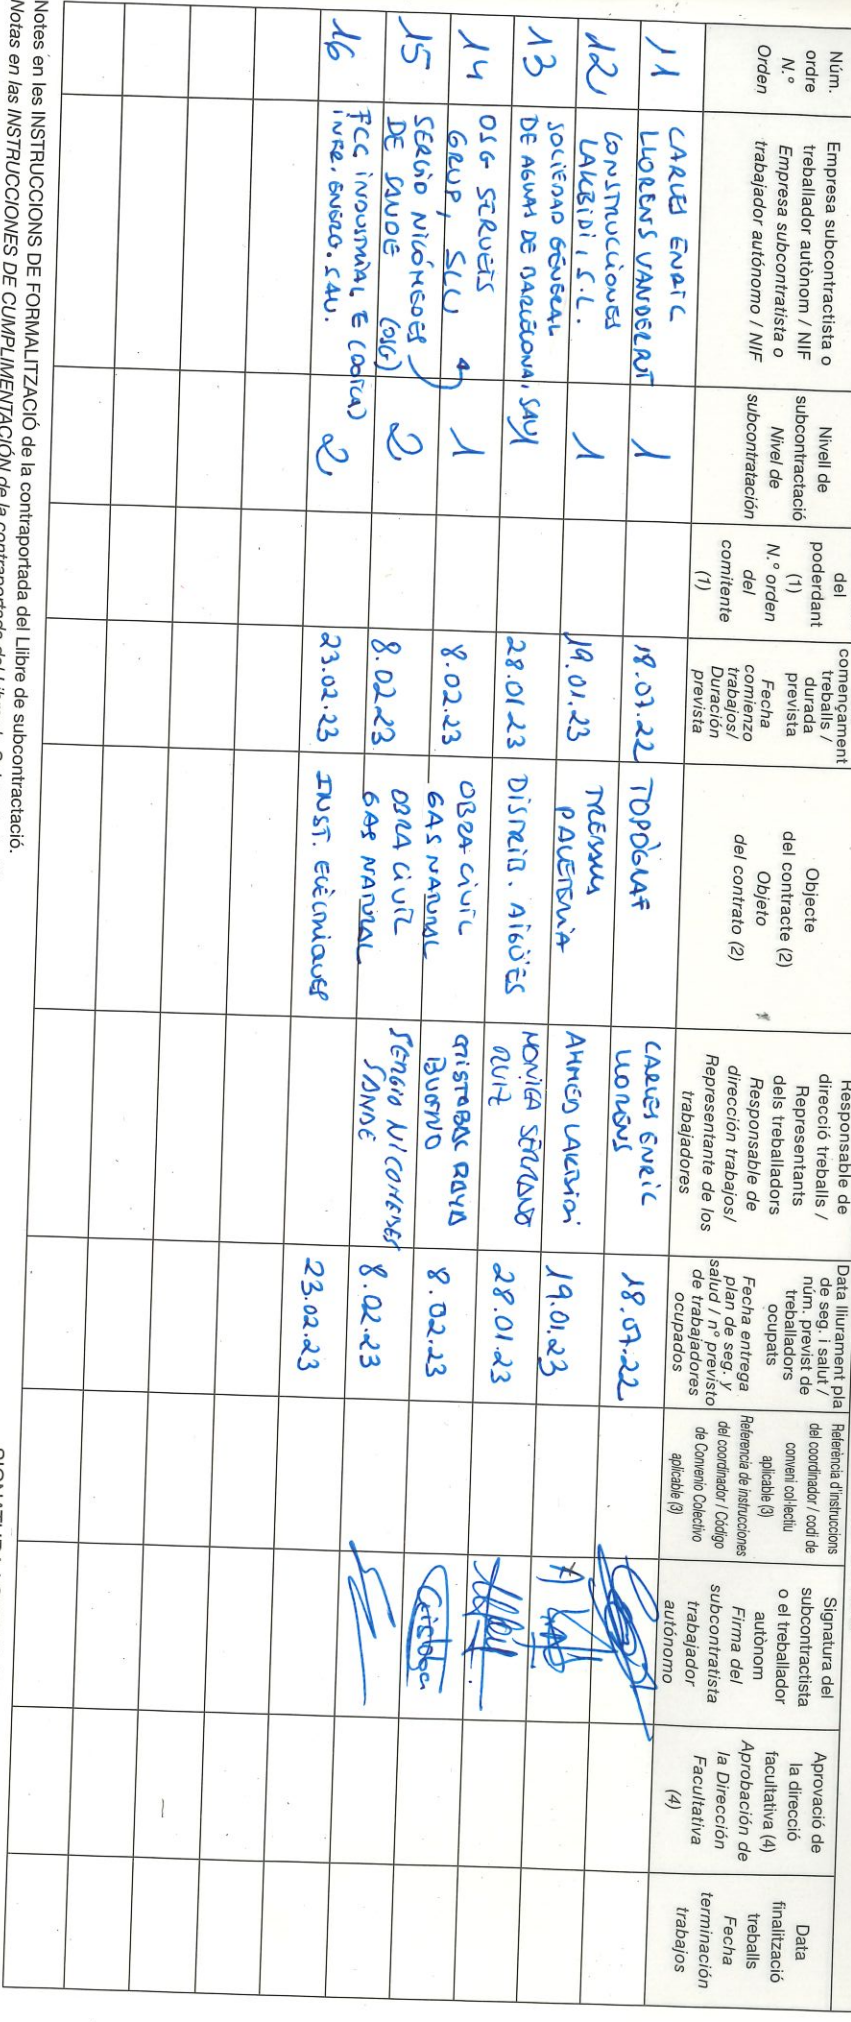 Núm.
ordre
N.º
Orden
Empresa subcontractista o
treballador autònom / NIF
Empresa subcontratista o
trabajador autónomo / NIF
Nivell de
subcontractació
Nivel de
subcontratación
del
poderdant
(1)
N.º orden
del
comitente
(1)
començament
treballs /
durada
prevista
Fecha
comienzo
trabajos/
Duración
prevista
Objecte
del contracte (2)
Objeto
del contrato (2)
Responsable de
direcció treballs /
Representants
dels treballadors
Responsable de
dirección trabajos/
Representante de los
trabajadores
Data lliurament pla
de seg. i salut /
núm. previst de
treballadors
ocupats
Fecha entrega
plan de seg. y
salud / nº previsto
de trabajadores
ocupados
Referència d'instruccions
del coordinador / codi de
conveni col·lectiu
aplicable (3)
Referencia de instrucciones
del coordinador / Código
de Convenio Colectivo
aplicable (3)
Signatura del
subcontractista
o el treballador
autònom
Firma del
subcontratista
trabajador
autónomo
Aprovació de
la direcció
facultativa (4)
Aprobación de
la Dirección
Facultativa
(4)
Data
finalització
treballs
Fecha
terminación
trabajos
11
CARLES ENRIC
LLORENS VANDERRIT
1
18.07.22
TOPÒGRAF
CARLES ENRIC
LLORENS
18.07.22
12
CONSTRUCCIONES
LAKBIDI, S.L.
1
19.01.23
TREBALLS
PALETERIA
AHMED LAKBIDI
19.01.23
13
SOCIEDAD GENERAL
DE AGUAS DE BARCELONA, SAU
1
28.01.23
DISTRIB. AIGÜES
MONICA SERRANO
RUIZ
28.01.23
14
OSG SERVEIS
GRUP, SLU
1
8.02.23
OBRA CIVIL
GAS NATURAL
CRISTOBAL RAYA
BUENO
8.02.23
Cristobal
15
SERGIO NICÓMEDES
DE SANDE (OSG)
2
8.02.23
OBRA CIVIL
GAS NATURAL
SERGIO NICOMEDES
SANDE
8.02.23
16
FCC INDUSTRIAL E
INFR. ENERG. SAU.
2
23.02.23
INST. ELÈCTRIQUES
23.02.23
Notes en les INSTRUCCIONS DE FORMALITZACIÓ de la contraportada del Llibre de subcontractació.
Notas en las INSTRUCCIONES DE CUMPLIMENTACIÓN de la contraportada del